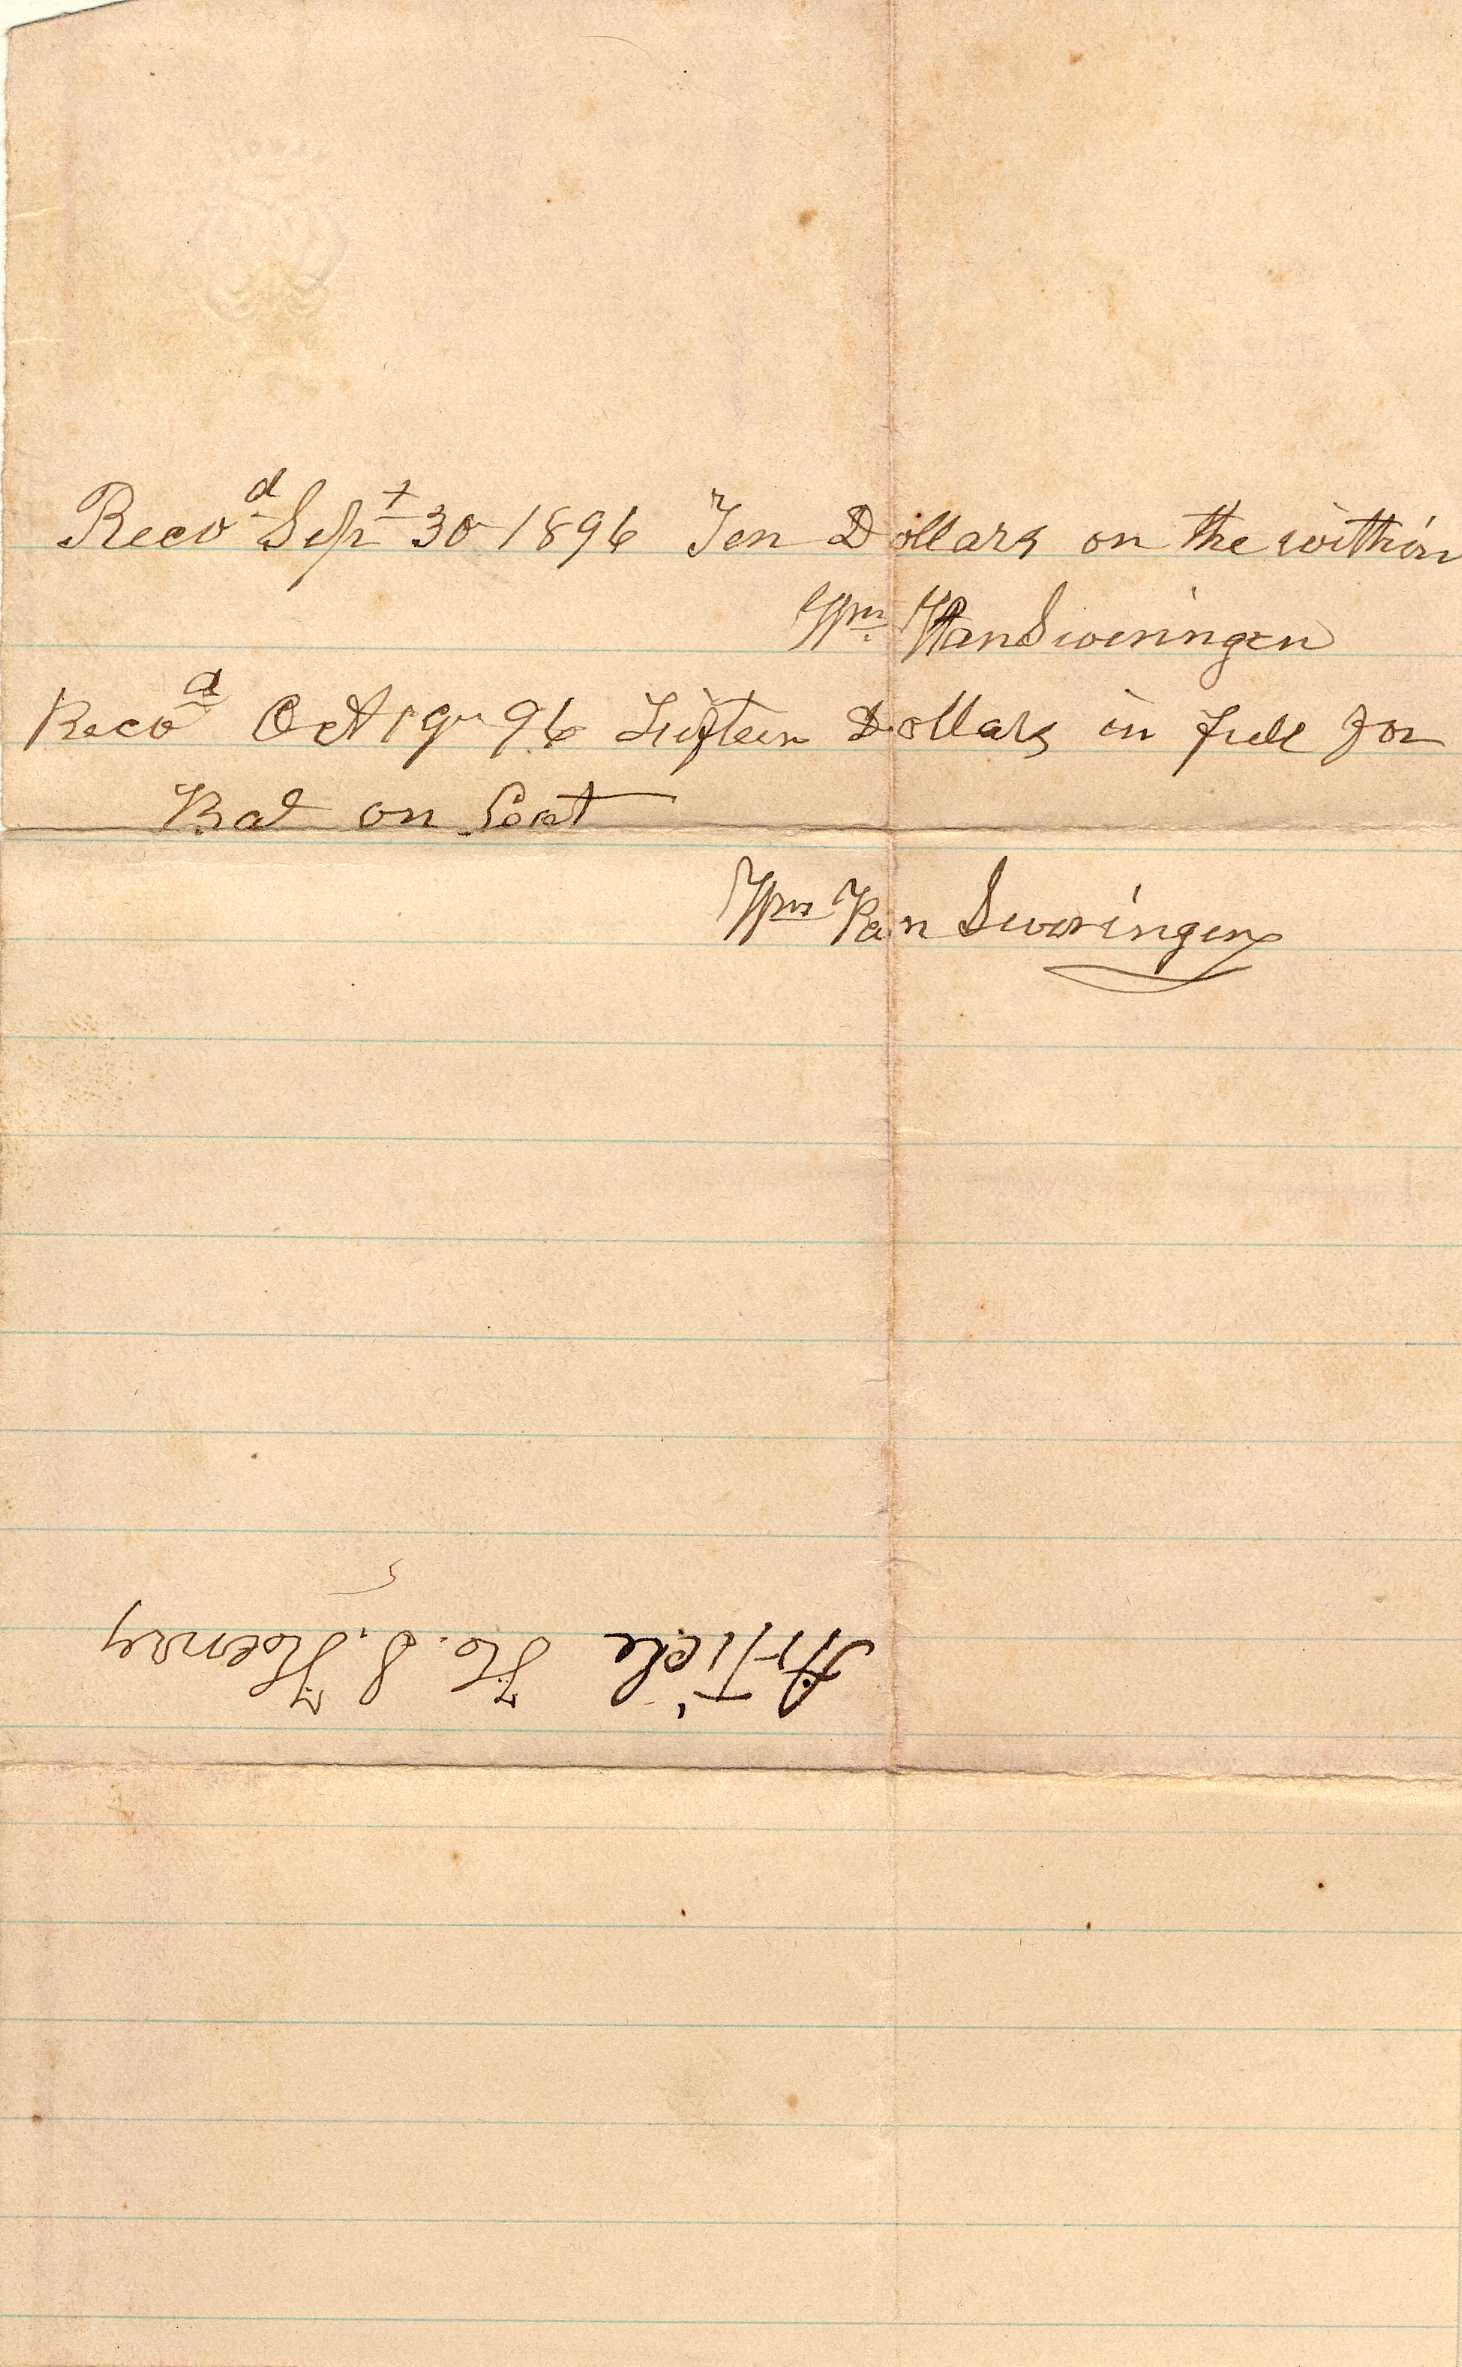 Recvd Sept 30 1896 Ten Dollars on the within
Wm VanSweringen
Recvd Oct 19 96 Fifteen Dollars in full for
Bal on
Wm Van Sweringen
Article H. S.